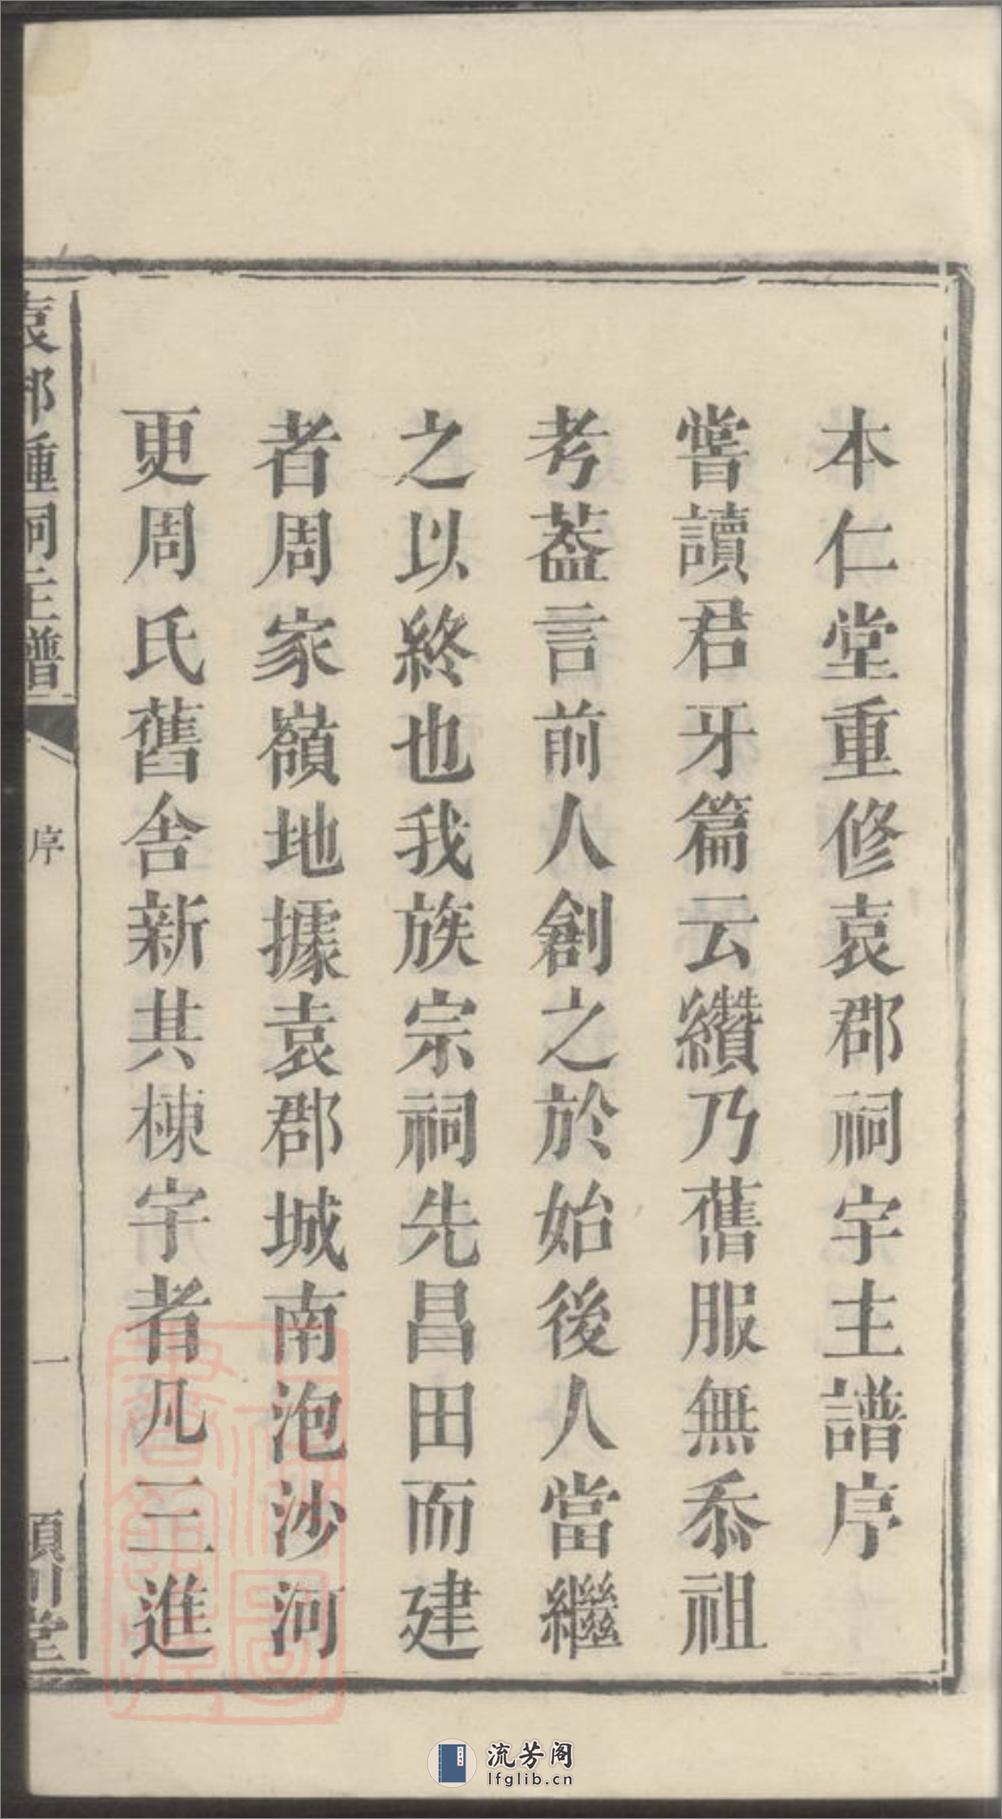 本仁堂重修袁郡祠宇主譜序
嘗讀君牙篇云纘乃舊服無忝祖
考葢言前人創之於始後人當繼
之以終也我族宗祠先昌田而建
者周家嶺地據袁郡城南泡沙河
更周氏舊舍新其棟宇者凡三進
袁郡鍾祠主譜
序
一
潁川堂
流芳阁
lfglib.cn